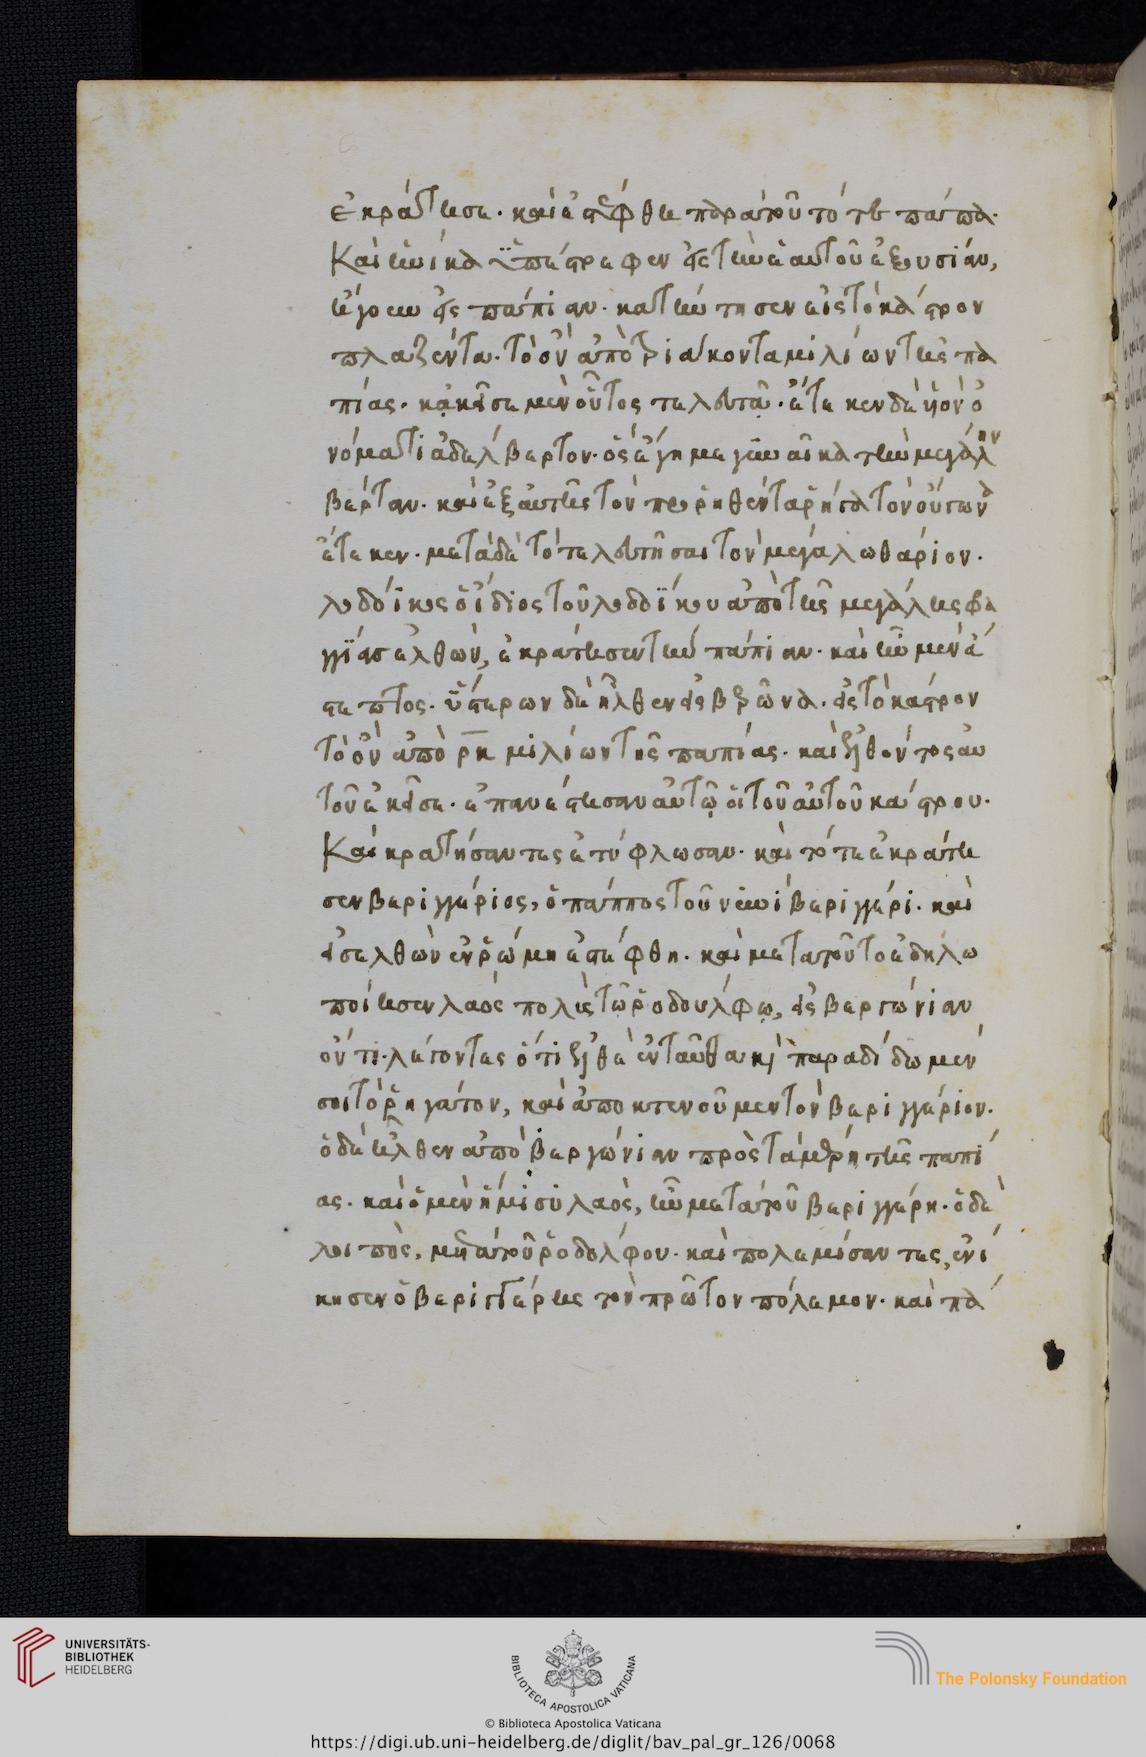 ἐκράτησε· καὶ ἐστέφθη παρὰ τοῦ τότε πάπα·
Καὶ ἡνίκα ὑπέστρεφεν εἰς τὴν ἑαυτοῦ ἐξουσίαν,
ἤγουν εἰς παπίαν· κατήντησεν εἰς τὸ κάστρον
πλαζέντα· τὸ ὂν ἀπὸ τριάκοντα μιλίων τῆς πα
πίας· κἀκεῖσε μὲν οὗτος τελευτᾷ· ἔτεκεν δὲ ὑιὸν ὀ
νόματι ἀδέλβερτον· ὃς ἔγημε γυναῖκα τὴν μεγάλην
βέρταν· καὶ ἐξ αὐτῆς τὸν προρηθέντα ῥῆγα τὸν οὕγωνα
ἔτεκεν· μετὰ δὲ τὸ τελευτῆσαι τὸν μέγα λωθάριον·
λοδόϊκος ὁ ἴδιος τοῦ λοδοΐκου ἀπὸ τῆς μεγάλης φρα
γγίας ἐλθὼν, ἐκράτησεν τὴν παπίαν· καὶ ἦν μὲν ἄ
στεπτος· ὕστερον δὲ ἦλθεν εἰς βερῶνα· εἰς τὸ κάστρον
τὸ ὂν ἀπὸ ρκ μιλίων τῆς παπίας· καὶ ἐλθόντος αυ
τοῦ ἐκεῖσε· ἐπανέστησαν αὐτῷ οἱ τοῦ αὐτοῦ κάστρου·
Καὶ κρατήσαντες ἐτύφλωσαν· καὶ τότε ἐκράτη
σεν βεριγγέριος, ὁ πάππος τοῦ νυνὶ βεριγγέρι· καὶ
εἰσελθὼν ἐν ῥώμη ἐστέφθη· καὶ μετὰ τοῦτο ἐδηλο
ποίησεν λαὸς πολὺς τῷ ῥοδούλφῳ, εἰς βεργώνιαν
όντι· λέγοντες ὅτι ἐλθὲ ἐνταῦθα καὶ παραδίδωμέν
σοι τὸ ῥηγάτον, καὶ ἀποκτενοῦμεν τὸν βεριγγέριον·
ὁ δὲ ἦλθεν ἀπὸ βεργώνιαν πρὸς τὰ μέρη τῆς παπί
ας· καὶ ὁ μὲν ἥμισυ λαὸς, ἦν μετὰ τοῦ βεριγγέρη· ὁ δὲ
λοιπὸς, μετὰ τοῦ ῥοδόλφου· καὶ πολεμίσαντες, ἐνί
κησεν ὁ βεριγγέρης τὸν πρῶτον πόλεμον· καὶ πά
UNIVERSITÄTS-
BIBLIOTHEK
HEIDELBERG
BIBLIOTECA APOSTOLICA VATICANA
The Polonsky Foundation
© Biblioteca Apostolica Vaticana
https://digi.ub.uni-heidelberg.de/diglit/bav_pal_gr_126/0068